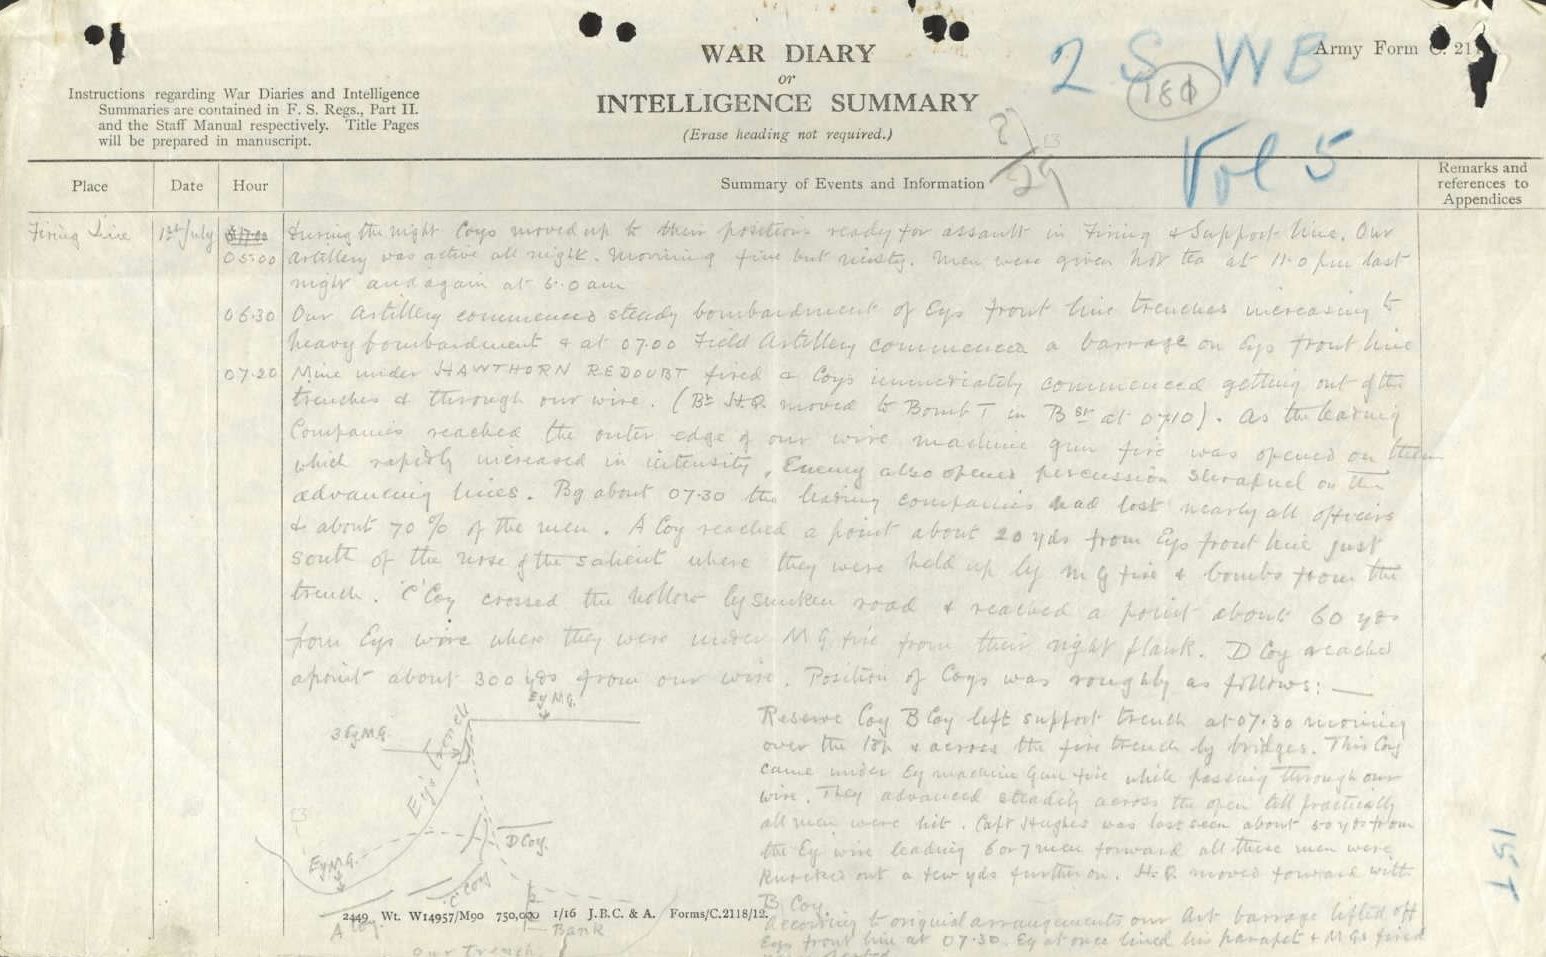 WAR DIARY
or
INTELLIGENCE SUMMARY
(Erase heading not required.)
Army Form C. 211
2 S W B
Vol 5
Instructions regarding War Diaries and Intelligence
Summaries are contained in F. S. Regs., Part II.
and the Staff Manual respectively. Title Pages
will be prepared in manuscript.
Place
Date
Hour
Summary of Events and Information
Remarks and
references to
Appendices
Firing Line 1st July
During the night Coys moved up to their positions ready for assault in Firing & Support line. Our
05.00 Artillery was active all night. Morning fine but misty. Men were given hot tea at 11.0 pm last
night and again at 5.0 am
06.30 Our Artillery commenced steady bombardment of Eys front line trenches increasing to
heavy bombardment & at 07.00 Field Artillery commenced a barrage on Eys front line
07.20 Mine under HAWTHORN REDOUBT fired & Coys immediately commenced getting out of the
trenches & through our wire. (Bn H.Q. moved to Bomb T in at 0710). As the leading
Companies reached the outer edge of our wire machine gun fire was opened on them
which rapidly increased in intensity, Enemy also opened percussion shrapnel on the
advancing lines. By about 07.30 the leading companies had lost nearly all officers
& about 70% of the men. A Coy reached a point about 20 yds from Eys front line just
south of the nose of the salient where they were held up by MG fire & bombs from the
trench. 'C' Coy crossed the hollow by sunken road & reached a point about 60 yds
from Eys wire where they were under MG fire from their right flank. D Coy reached
a point about 300 yds from our wire. Position of Coys was roughly as follows: —
Reserve Coy B Coy left support trench at 07.30 moving
over the top & across the fire trench by bridges. This Coy
came under Ey machine Gun fire while passing through our
wire. They advanced steadily across the open till practically
all men were hit. Capt Hughes was last seen about 50 yds from
the Ey wire leading 6 or 7 men forward all these men were
knocked out a few yds further on. H.Q. moved forward with
B Coy.
According to original arrangements our Art barrage lifted off
Eys front line at 07.30. Ey at once lined his parapet & MGs fired
Ey M.G.
3 Ey M.G.
Ey's Trench
Ey M.G.
D Coy.
'C' Coy
A Coy.
Bank
Our Trench
2449 Wt. W14957/M90 750,000 1/16 J.B.C. & A. Forms/C.2118/12.